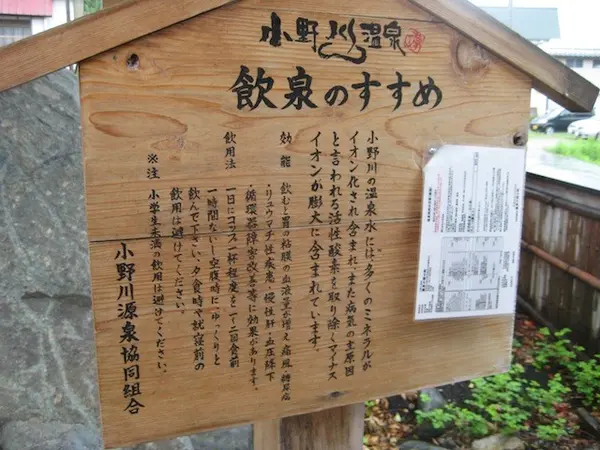 小野川温泉
飲泉のすすめ
小野川の温泉水には、多くのミネラルが
イオン化され含まれ、また病気の主原因
と言われる活性酸素を取り除くマイナス
イオンが膨大に含まれています。
効能 飲むと胃の粘膜の血液量が増え 痛風・糖尿病
・リュウマチ性疾患・慢性肝・血圧降下
・循環器障害改善等に効果があります。
飲用法 一日にコップ一杯程度を一〜二回食前
一時間ないし空腹時にゆっくりと
飲んで下さい。夕食時や就寝前の
飲用は避けてください。
※注 小学生未満の飲用は避けてください。
小野川源泉協同組合